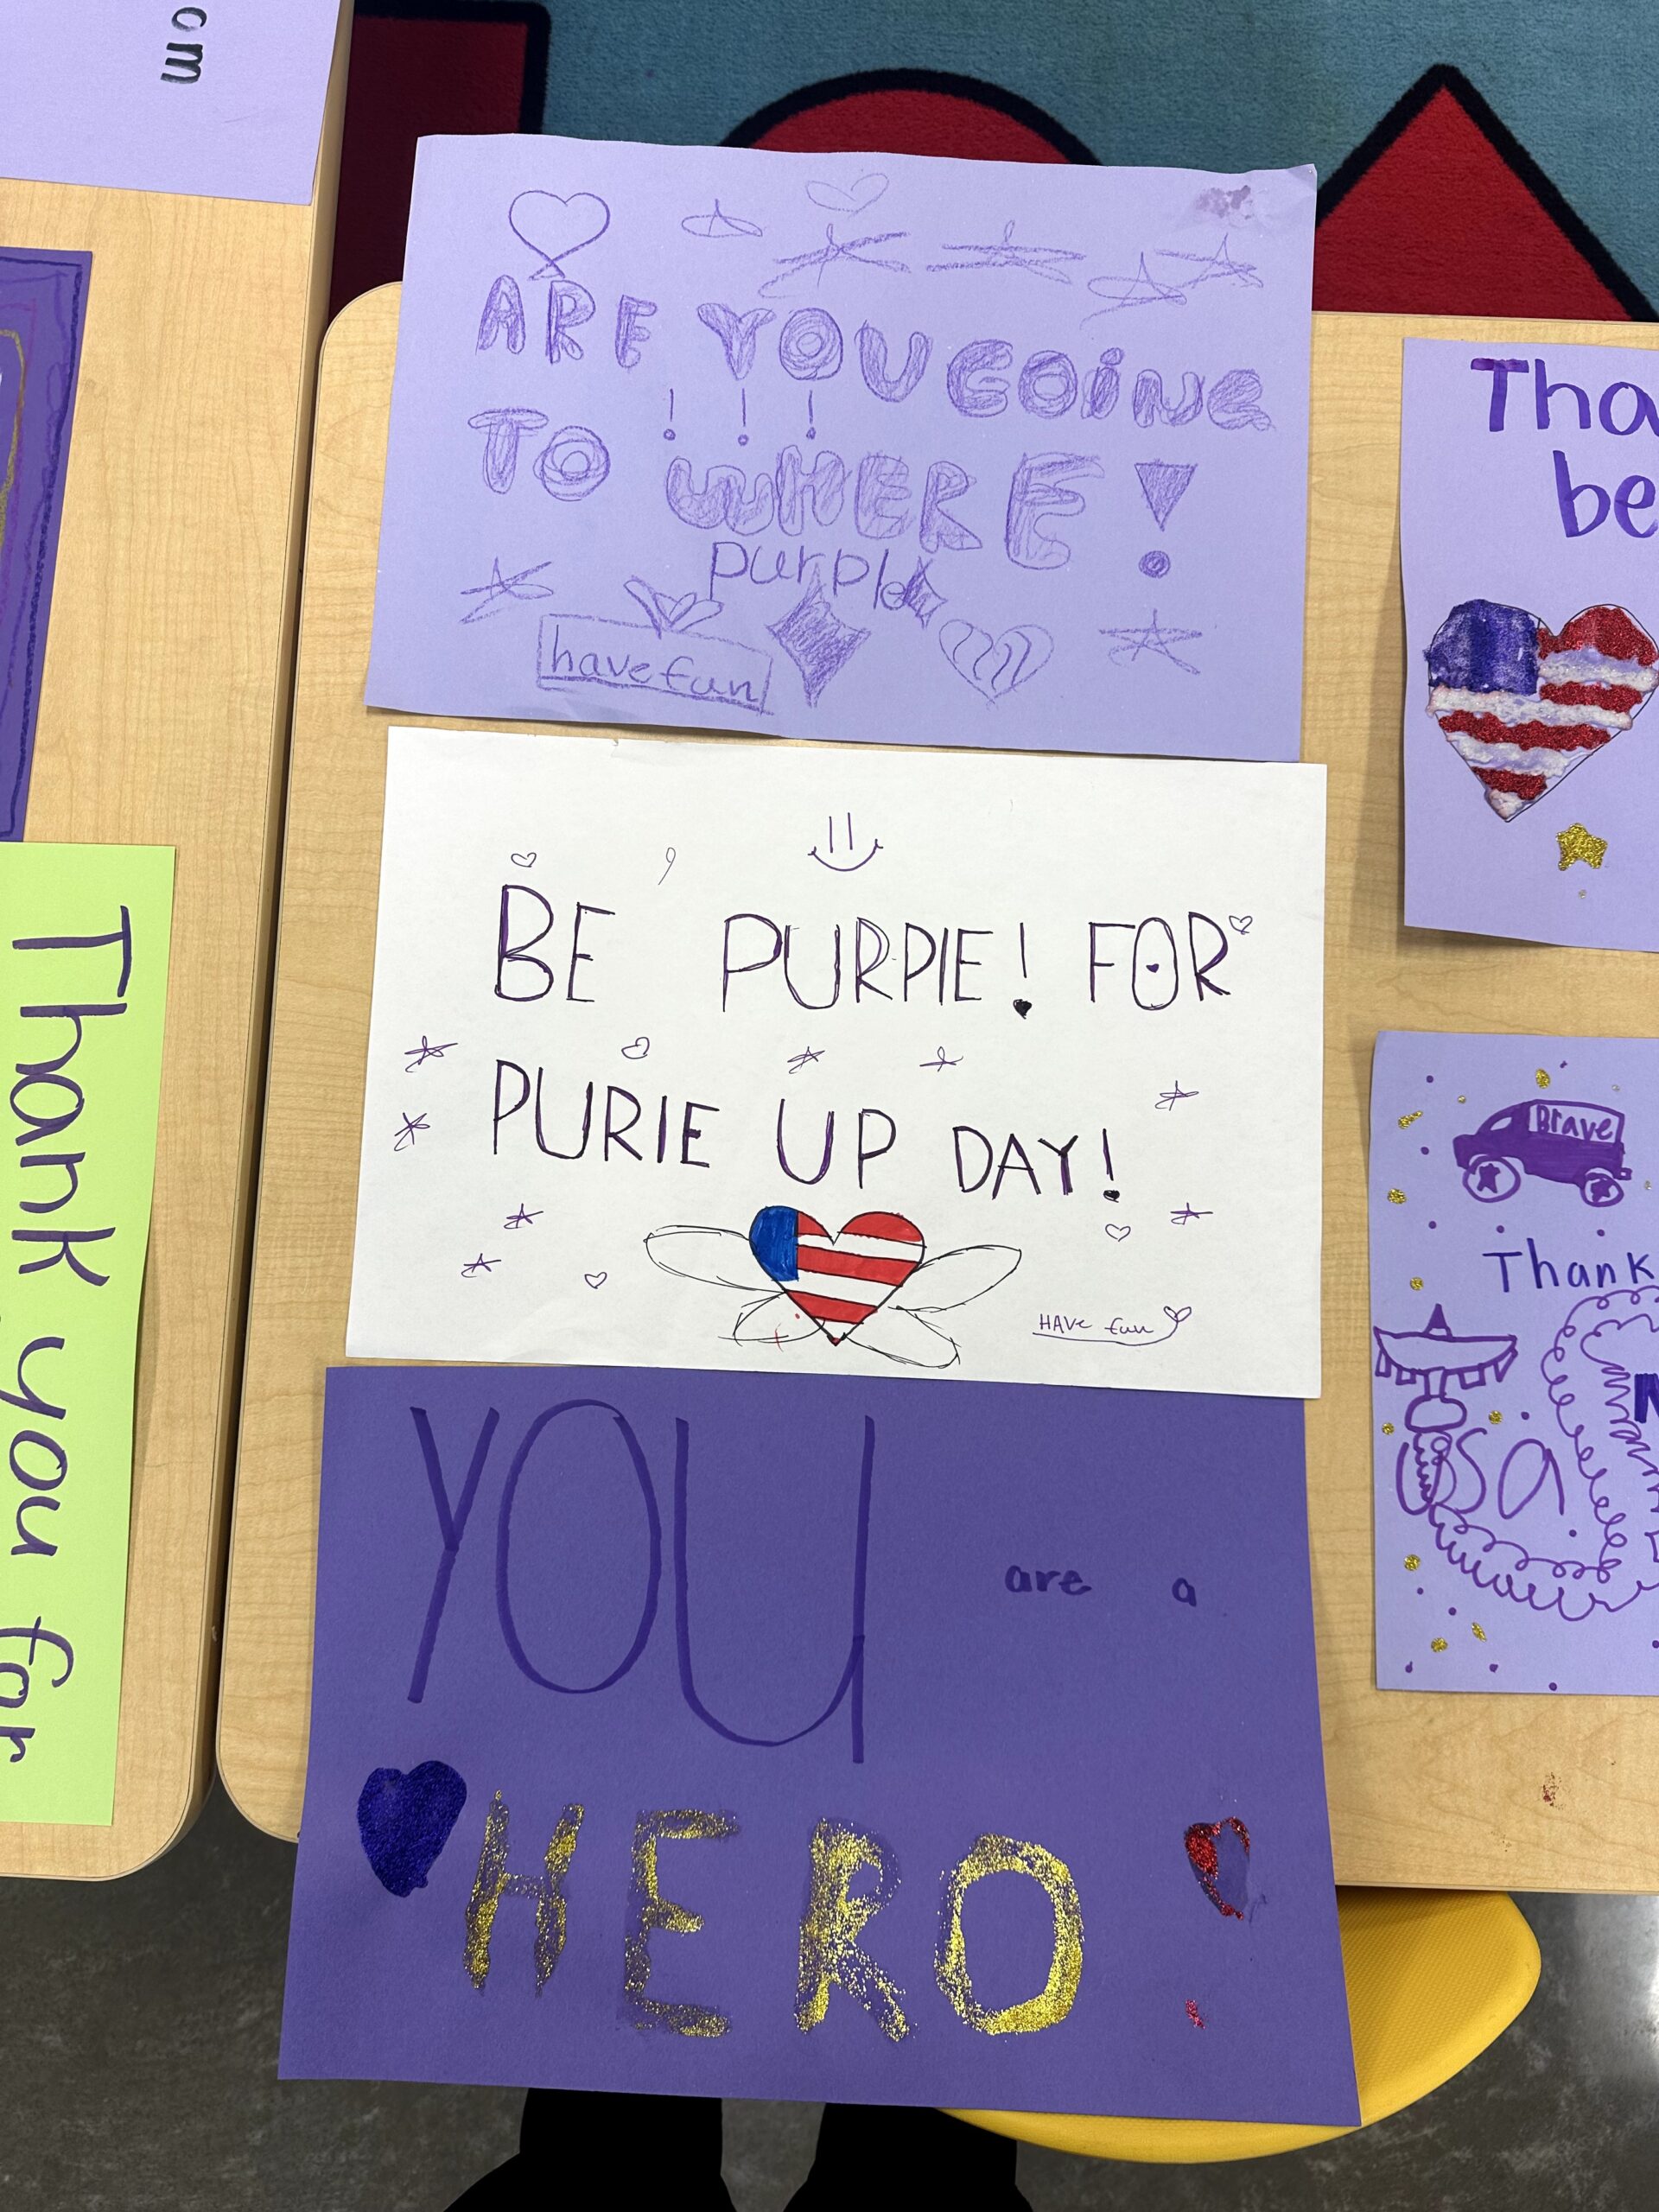 om
ARE YOU GOING
! ! !
TO WHERE!
purple
have fun
BE PURPlE! FOR
PURlE UP DAY!
HAVe fun
YOU are a
HERO
Thank you for
Tha
be
Brave
Thank
USa